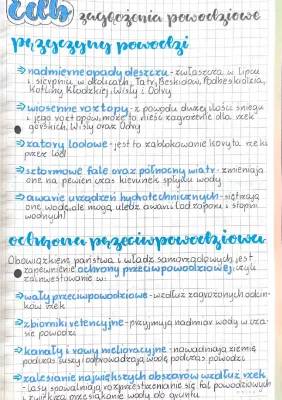 zagrożenia powodziowe
przyczyny powodzi
→nadmierne opady deszczu - zwłaszcza w lipcu
i sierpniu w okolicach, Tatr, Beskidów, Podbeskidzia,
Kotliny Kłodzkiej, Wisły i Odry
→wiosenne roztopy - z powodu dużej ilości śniegu
i jego roztopów, może to nieść zagrożenie dla rzek
górskich, Wisły oraz Odry
→zatory lodowe - jest to zablokowanie koryta rzeki
przez lód
→sztormowe fale oraz północny wiatr - zmieniają
one na pewien czas kierunek spływu wody
→awarie urządzeń hydrotechnicznych - spiętrzają
one wodę, ale mogą ulec awarii (od zapór i stopni
wodnych)
ochrona przeciwpowodziowa
Obowiązkiem państwa i władz samorządowych jest
zapewnienie ochrony przeciwpowodziowej, czyli
zainwestowanie w:
→wały przeciwpowodziowe - wzdłuż zagrożonych odcin-
ków rzek
→zbiorniki retencyjne - przyjmują nadmiar wody w cza-
sie powodzi
→kanały i rowy melioracyjne - nawadniają ziemię
podczas suszy i odprowadzają wodę podczas powodzi
→zalesianie największych obszarów wzdłuż rzek
- lasy spowalniają rozprzestrzenianie się fal powodziowych
i zwiększa przesiąkanie wody do gruntu